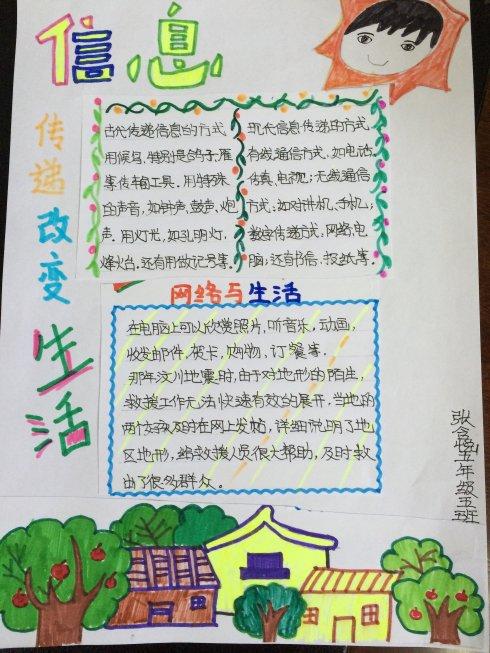 信息
传递改变生活
古代传递信息的方式
用候鸟,特别是鸽子,雁
等传书的工具。用特殊
的声音,如钟声,鼓声,炮
声,用灯光,如孔明灯,
烽火台,还有用做记号等。
现代信息传递的方式
有线通信方式,如电话,
传真、电视;无线通信
方式,如对讲机、手机;
数字传递方式,网络电
脑;还有书信、报纸等。
网络与生活
在电脑上可以欣赏照片,听音乐,动画,
收发邮件,贺卡,购物,订餐等.
那年汶川地震时,由于对地形的陌生,
救援工作无法快速有效的展开,当地的
两个孩及时在网上发帖,详细说明了地
区地形,给救援人员很大帮助,及时救
出了很多群众.
张含悦五年级五班